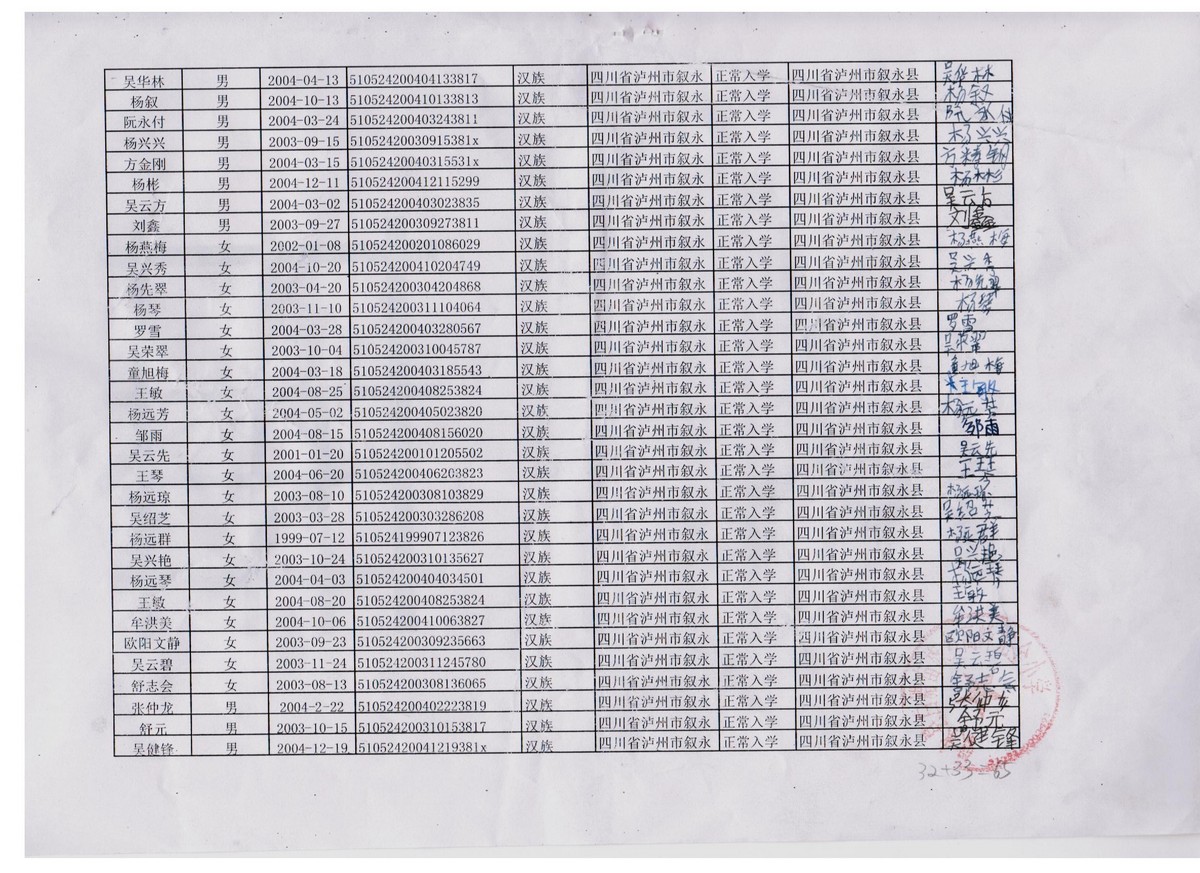 吴华林 男 2004-04-13 510524200404133817 汉族 四川省泸州市叙永 正常入学 四川省泸州市叙永县 吴华林
杨叙 男 2004-10-13 510524200410133813 汉族 四川省泸州市叙永 正常入学 四川省泸州市叙永县 杨叙
阮永付 男 2004-03-24 510524200403243811 汉族 四川省泸州市叙永 正常入学 四川省泸州市叙永县
杨兴兴 男 2003-09-15 51052420030915381x 汉族 四川省泸州市叙永 正常入学 四川省泸州市叙永县 杨兴兴
方金刚 男 2004-03-15 51052420040315531x 汉族 四川省泸州市叙永 正常入学 四川省泸州市叙永县
杨彬 男 2004-12-11 510524200412115299 汉族 四川省泸州市叙永 正常入学 四川省泸州市叙永县 杨彬
吴云方 男 2004-03-02 510524200403023835 汉族 四川省泸州市叙永 正常入学 四川省泸州市叙永县 吴云方
刘鑫 男 2003-09-27 510524200309273811 汉族 四川省泸州市叙永 正常入学 四川省泸州市叙永县 刘鑫
杨燕梅 女 2002-01-08 510524200201086029 汉族 四川省泸州市叙永 正常入学 四川省泸州市叙永县 杨燕梅
吴兴秀 女 2004-10-20 510524200410204749 汉族 四川省泸州市叙永 正常入学 四川省泸州市叙永县 吴兴秀
杨先翠 女 2003-04-20 510524200304204868 汉族 四川省泸州市叙永 正常入学 四川省泸州市叙永县 杨先翠
杨琴 女 2003-11-10 510524200311104064 汉族 四川省泸州市叙永 正常入学 四川省泸州市叙永县 杨琴
罗雪 女 2004-03-28 510524200403280567 汉族 四川省泸州市叙永 正常入学 四川省泸州市叙永县 罗雪
吴荣翠 女 2003-10-04 510524200310045787 汉族 四川省泸州市叙永 正常入学 四川省泸州市叙永县 吴荣翠
童旭梅 女 2004-03-18 510524200403185543 汉族 四川省泸州市叙永 正常入学 四川省泸州市叙永县 童旭梅
王敏 女 2004-08-25 510524200408253824 汉族 四川省泸州市叙永 正常入学 四川省泸州市叙永县
杨远芳 女 2004-05-02 510524200405023820 汉族 四川省泸州市叙永 正常入学 四川省泸州市叙永县 杨远芳
邹雨 女 2004-08-15 510524200408156020 汉族 四川省泸州市叙永 正常入学 四川省泸州市叙永县 邹雨
吴云先 女 2001-01-20 510524200101205502 汉族 四川省泸州市叙永 正常入学 四川省泸州市叙永县 吴云先
王琴 女 2004-06-20 510524200406203823 汉族 四川省泸州市叙永 正常入学 四川省泸州市叙永县 王琴
杨远琼 女 2003-08-10 510524200308103829 汉族 四川省泸州市叙永 正常入学 四川省泸州市叙永县 杨远琼
吴绍芝 女 2003-03-28 510524200303286208 汉族 四川省泸州市叙永 正常入学 四川省泸州市叙永县 吴绍芝
杨远群 女 1999-07-12 510524199907123826 汉族 四川省泸州市叙永 正常入学 四川省泸州市叙永县 杨远群
吴兴艳 女 2003-10-24 510524200310135627 汉族 四川省泸州市叙永 正常入学 四川省泸州市叙永县 吴兴艳
杨远琴 女 2004-04-03 510524200404034501 汉族 四川省泸州市叙永 正常入学 四川省泸州市叙永县 杨远琴
王敏 女 2004-08-20 510524200408253824 汉族 四川省泸州市叙永 正常入学 四川省泸州市叙永县 王敏
牟洪美 女 2004-10-06 510524200410063827 汉族 四川省泸州市叙永 正常入学 四川省泸州市叙永县 牟洪美
欧阳文静 女 2003-09-23 510524200309235663 汉族 四川省泸州市叙永 正常入学 四川省泸州市叙永县 欧阳文静
吴云碧 女 2003-11-24 510524200311245780 汉族 四川省泸州市叙永 正常入学 四川省泸州市叙永县 吴云碧
舒志会 女 2003-08-13 510524200308136065 汉族 四川省泸州市叙永 正常入学 四川省泸州市叙永县 舒志会
张仲龙 男 2004-2-22 510524200402223819 汉族 四川省泸州市叙永 正常入学 四川省泸州市叙永县 张仲龙
舒元 男 2003-10-15 510524200310153817 汉族 四川省泸州市叙永 正常入学 四川省泸州市叙永县 舒元
吴健锋 男 2004-12-19 51052420041219381x 汉族 四川省泸州市叙永 正常入学 四川省泸州市叙永县 吴健锋
32+33=65